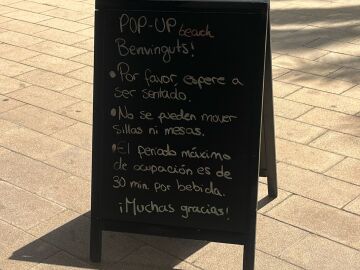 POP-UP beach
Benvinguts!
• Por favor espere a
ser sentado.
• No se pueden mover
sillas ni mesas.
• El periodo máximo
de ocupación es de
30 min. por bebida.
¡Muchas gracias!